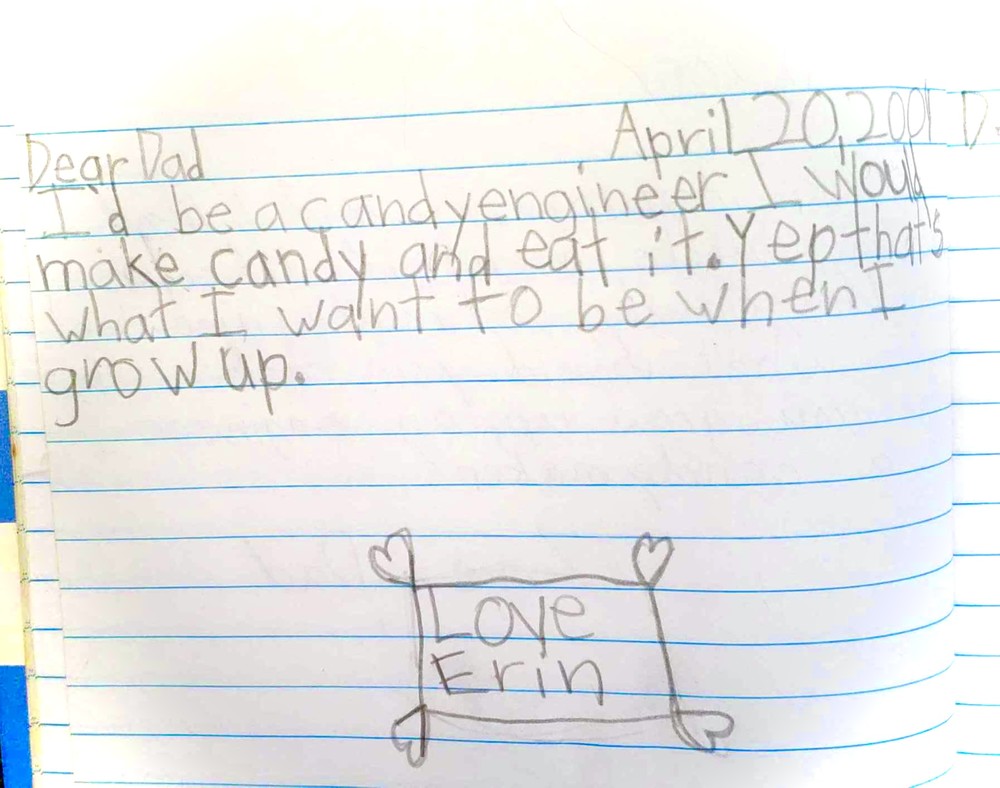 Dear Dad April 20, 2001 D.
I'd be a candy engineer I would
make candy and eat it. Yep that's
what I want to be when I
grow up.
Love
Erin